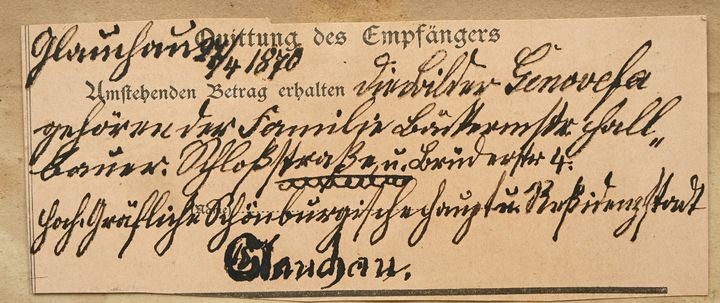 Glauchau 24/4 1870
Quittung des Empfängers
Umstehenden Betrag erhalten die Bilder Genovefa
gehören der Familie Bäckermstr. Hall-
bauer. Schloßstraße u. Brüderstr 4.
Hoch. Gräfliche Schönburgische Haupt u. Residenzstadt
Glauchau.